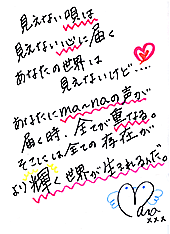 見えない唄は
見えない心に届く
あなたの世界は
見えないけど‥‥
あなたにmannaの声が
届く時、全てが重なる。
そこには全ての存在が
より輝く世界が生まれるんだ。
xxx